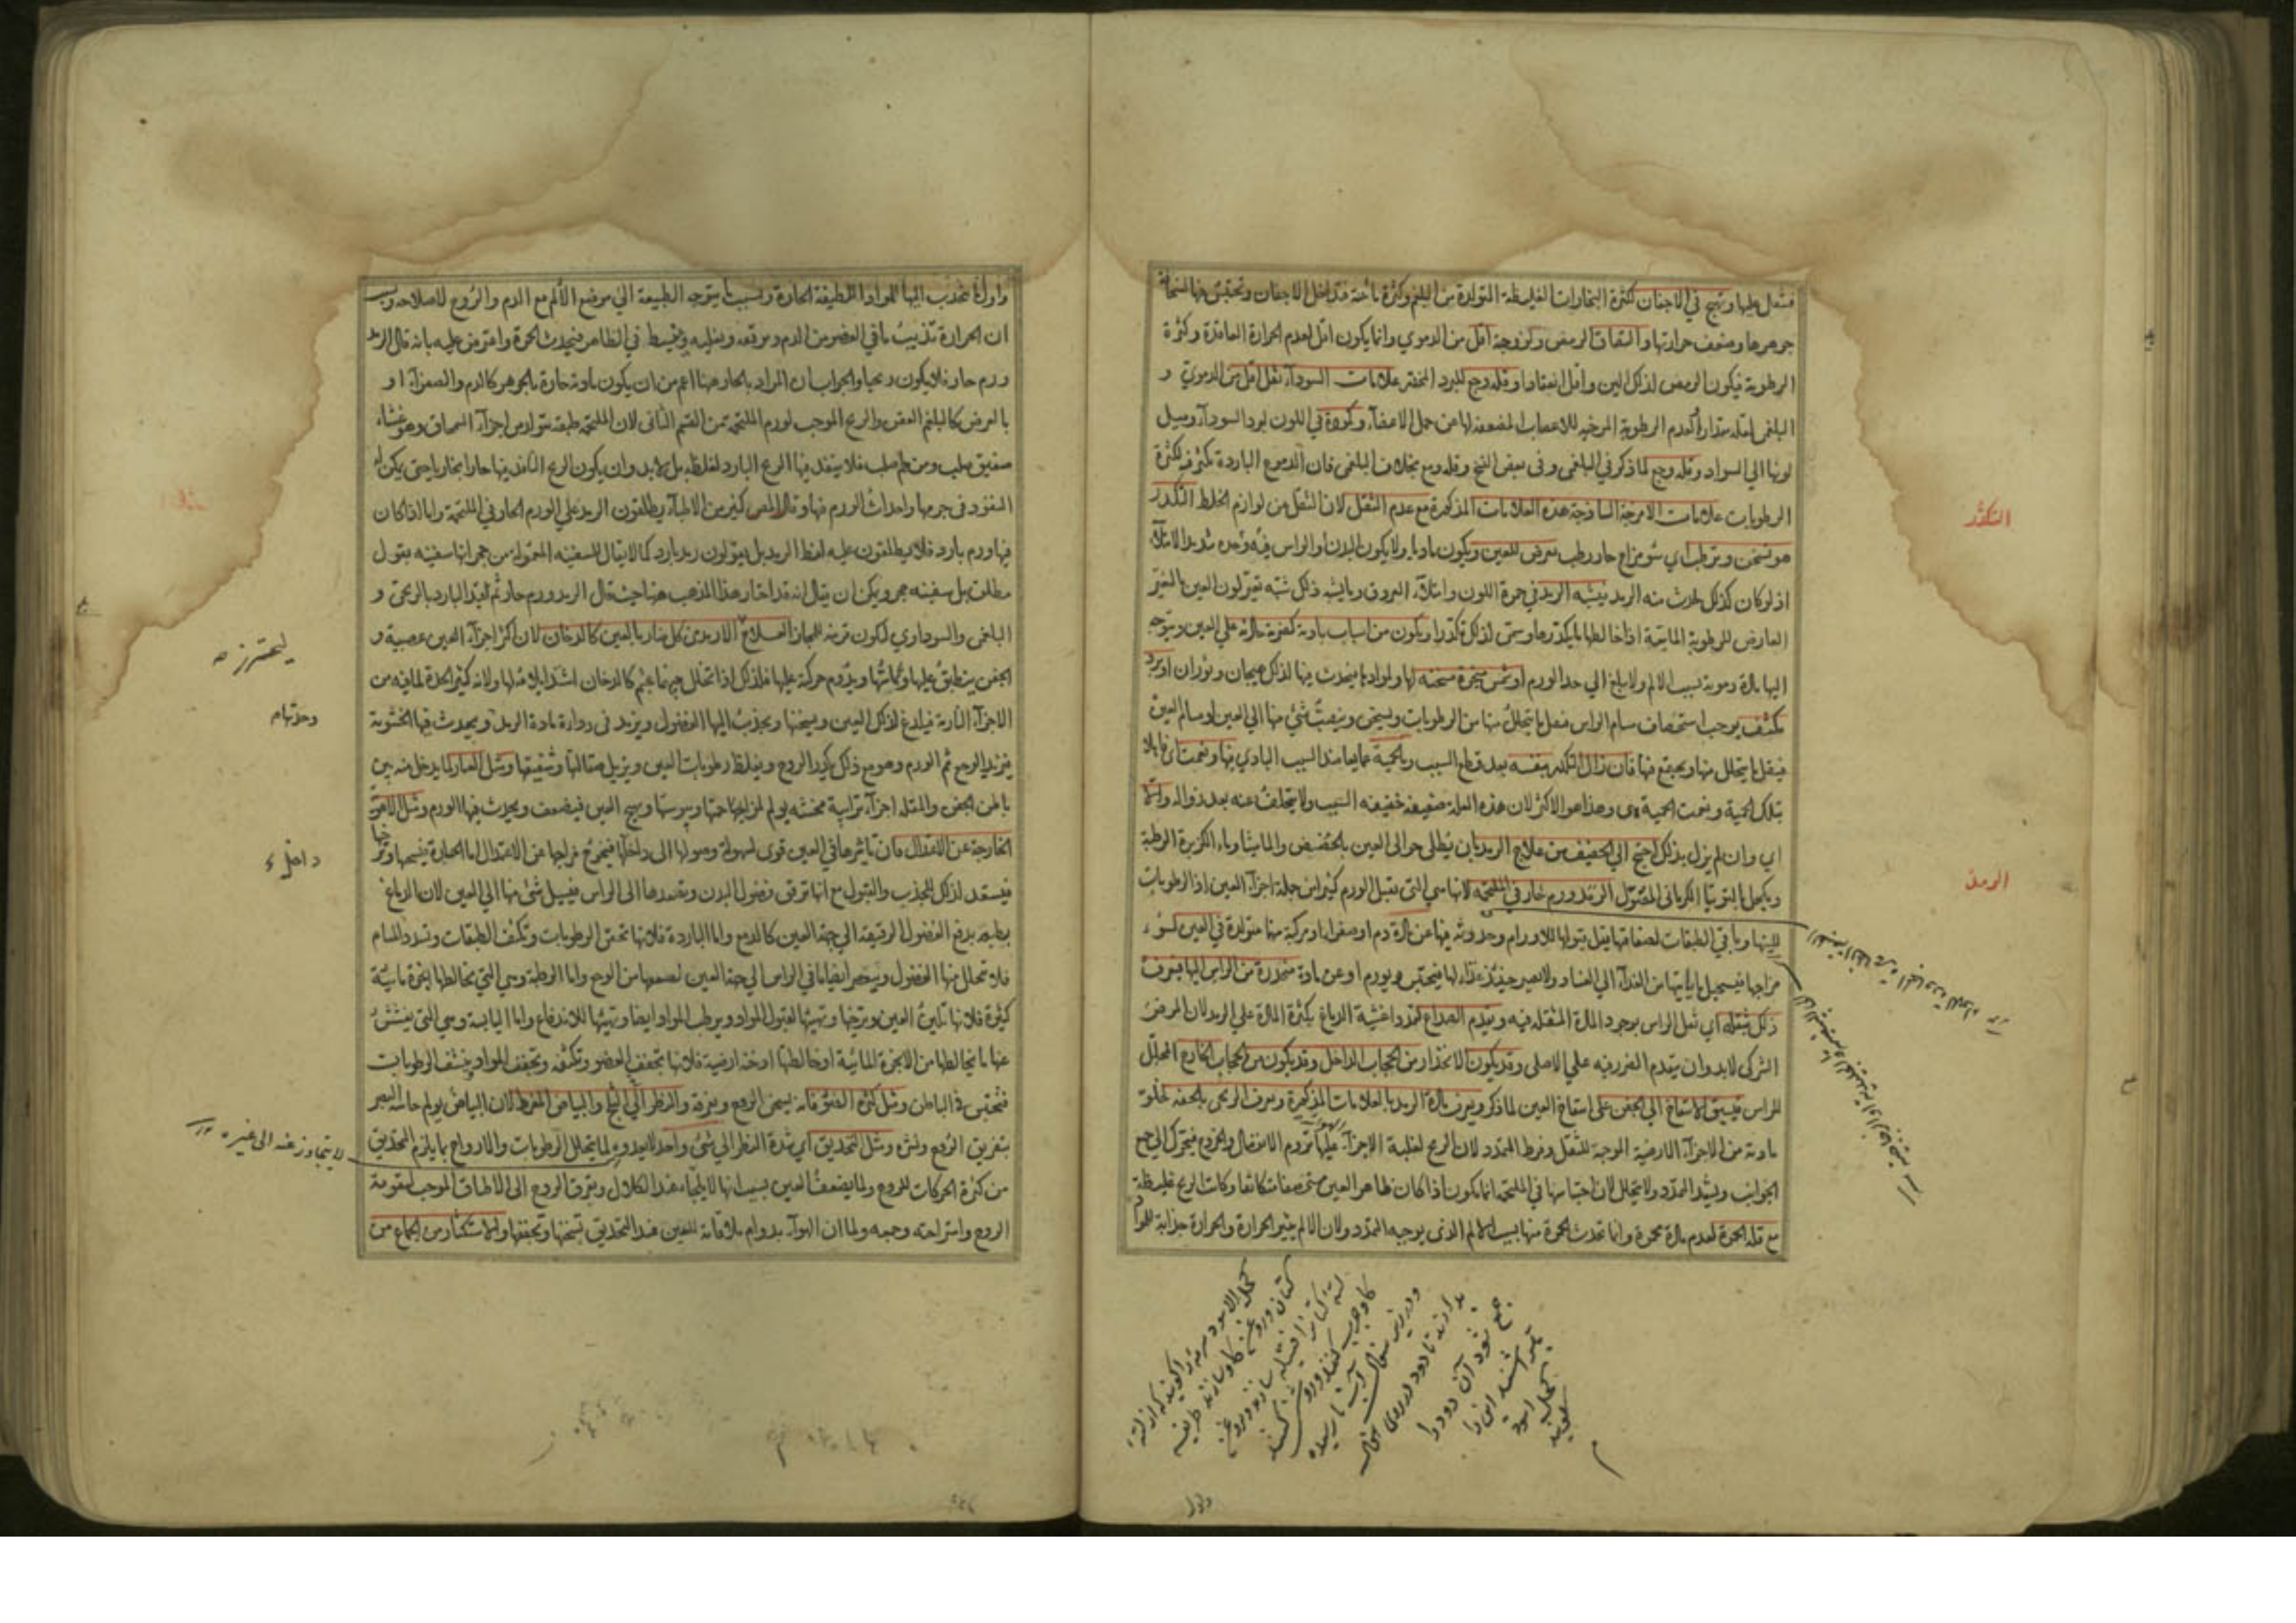 فتثقل عليها وتهيج في الاجفان لكثرة البخارات الغليظة المتولدة من البلغم وكثرة ما تحته فتداخل الاجفان وتحتبس فيها
جوهرها وضعف حرارتها والتصاق الرمص وكزوجة اقل من الدموي وانما يكون اقل لعدم الحرارة العاقدة وكثرة
الرطوبة فيكون الرمص لذلك الين واقل انعقادا وقلة وجع للبرد المخدر علامات السوداء ثقل اقل من الدموي و
البلغمي لقلة مقداره ولعدم الرطوبة المرخية للاعصاب المضعفة لها عن حمل الاعضاء وكمودة في اللون لبرد السوداء وميل
لونها الي السواد وقلة وجع لما ذكر في البلغمي وفي بعض النسخ وقلة دمع بخلاف البلغمي فان الدموع الباردة تكثر فيه لكثرة
الرطوبات علامات الامزجة الساذجة هذه العلامات المذكورة مع عدم الثقل لان الثقل من لوازم الخلط التكدر
هو تسخن وترطب اي سوء مزاج حار رطب يعرض للعين ويكون ماديا ولا يكون البدن او الراس فيه وحده شديد الامتلاء
اذ لو كان كذلك لحدث منه الرمد يشبه الرمد في حمرة اللون وامتلاء العروق وما يشبه ذلك
العارض للرطوبة المائية اذا خالطها ما يكدرها وسمي لذلك تكدرا ويكون من اسباب بادية كضربة حادثة علي العين ويتوجه
اليها مادة دموية بسبب الالم ولا يبلغ الي حد الورم او شمس مبخرة مسخنة لها ولموادها فيحدث فيها لذلك هيجان وثوران او برد
مكثف يوجب استحصاف مسام الراس فيقل ما يتحلل منها من الرطوبات ويسخن وينصب شئ منها الي العين او مسام العين
فيقل ما يتحلل منها ويجتمع فيها فان زال التكدر بنفسه بعد قطع السبب وبالحمية عما يعاضد السبب البادي فبها ونعمت اي فابلا
بتلك الحمية ونعمت الحمية هي وهذا هو الاكثر لان هذه العلة ضعيفة خفيفة السبب ولا يتخلف عنه بعد زواله والا
اي وان لم يزل بذلك احتيج الي الخفيف من علاج الرمد بان يطلى حوالى العين بالحضض والماميثا وماء الكزبرة الرطبة
ويكحل بالتوتيا الكرماني المغسول الرمد ورم حار في الملتحمة لانها هي التي تقبل الورم كثيرا من جملة اجزاء العين اذ الرطوبات
للينها وباقي الطبقات لصفاقتها يقل قبولها للاورام وحدوثه فيها عن مادة دم او صفراء او مركبة منها متولدة في العين لسوء
مزاجها فيستحيل ما ياتيها من الغذاء الي الفساد ولا يصير حينئذ غذاء لها فيحتبس ويورم او عن مادة منحدرة من الراس اليها فيعرف
ذلك بثقله اي ثقل الراس بوجود المادة المثقلة فيه وبتقدم الصداع لتمدد اغشية الدماغ بكثرة المادة علي الرمد لان المرض
الشركى لابد وان يتقدم الضرر فيه علي الاصلى وقد يكون الانحدار من الحجاب الداخل وقد يكون من الحجاب الخارج المجلل
للراس فيسبق الانتفاخ الي الجفن علي انتفاخ العين لما ذكر ويعرف مادة الرمد بالعلامات المذكورة ويعرف الريحي بالخفة لخلوة
مادته من الاجزاء الارضية الموجبة للثقل وفرط التمدد لان الريح لغلبة الاجزاء الهوائية عليها تروم الانفصال والخروج فيتحرك الي جميع
الجوانب ويشتد التمدد ولا يتحلل لان احتباسها في الملتحمة انما يكون اذا كان ظاهر العين مستحصفا متكاثفا وكانت الريح غليظة
مع قلة الحمرة لعدم مادة محمرة وانما تحدث الحمرة فيها بسبب الالم الذي يوجبه التمدد ولان الالم مثير الحرارة والحرارة جذابة للمواد
التكدر
الرمد
كحل الاسود سرمه را كويند كه از لته
كتان وروغن كاو سازند طريقه
لته كتانرا فتيله سازند وبروغن
كاو چرب كنند وروشن كنند
ودر زير سفال آب نارسيده
بدارند تا دود در روى سفال
جمع شود آن دود را
بتراشند اين را
كحل اسود
كويند
واولا
واولا تنجذب اليها المواد اللطيفة الحارة وبسبب ما يتوجه الطبيعة الي موضع الالم مع الدم والروح لاصلاحه وبسبب
ان الحرارة تذيب ما في العضو من الدم وترققه وتغليه وينبسط في الظاهر فيحدث الحمرة واعترض عليه بانه قال الرمد
ورم حار فلا يكون ريحيا والجواب ان المراد بالحار هنا اعم من ان يكون مادته حارة بالجوهر كالدم والصفراء او
بالعرض كالبلغم العفن والريح الموجب لورم الملتحمة من القسم الثاني لان الملتحمة طبقة تتولد من اجزاء السمحاق وهو غشاء
صفيق صلب ومن عظم صلب فلا ينفذ فيها الريح البارد لغلظه بل لابد وان يكون الريح النافذ فيها حارا بخاريا حتى يمكن له
النفوذ في جرمها واحداث الورم فيها وقال المص كثير من الاطباء يطلقون الرمد علي الورم الحار في الملتحمة واما اذا كان
فيها ورم بارد فلا يطلقون عليه لفظ الرمد بل يقولون رمد بارد كما لا يقال للسفينة المعمولة من حجر انها سفينة بقول
مطلق بل سفينة حجر ويمكن ان يقال انه قد اختار هذا المذهب هنا حيث قال الرمد ورم حار ثم قيد البارد بالريحي و
البلغمي والسوداوي لتكون قرينة للمجاز العلاج الارمد من كل ضار بالعين كالدخان لان اكثر اجزاء العين عصبية و
الجفن ينطبق عليها ويماسها ويدوم حركته عليها فلذلك اذا تخلل جرمها جسم كالدخان اشتد ايلامه لها ولانه كثير الحدة لما فيه من
الاجزاء النارية فيلدغ لذلك العين ويسخنها ويجذب اليها الفضول ويزيد في رداءة مادة الرمد ويحدث فيها الخشونة
فيزيد الوجع ثم الورم وهو مع ذلك يكدر الروح ويغلظ رطوبات العين ويزيل صقالتها وشفيفها ومثل الغبار لما يدخل منه بين
باطن الجفن والمقلة اجزاء ترابية مخشنة يولم لمزاجها حتها ويبوستها ويهيج العين فيضعف ويحدث فيها الورم ومثل الاهوية
الخارجة عن الاعتدال فان تاثيرها في العين قوى لسهولة وصولها الى داخلها فيخرج مزاجها عن الاعتدال اما الحارة فيسخنها وترخيها
فيستعد لذلك للجذب والقبول مع انها ترقق فضول البدن وتصعدها الى الراس فيسيل شئ منها الي العين لان الدماغ
بطبعه يدفع الفضول الرقيقة الي جهة العين كالدمع واما الباردة فلانها تحقن الرطوبات وتكثف الطبقات وتسدد المسام
فلا تتحلل منها الفضول وينعصر ايضا ما في الراس الي جهة العين لضعفها من الوجع واما الرطبة وهي التي يخالطها ابخرة مائية
كثيرة فلانها تلين العين وترخيها وتهيئها لقبول المواد ويرطب المواد ايضا ويهيئها للاندفاع واما اليابسة وهي التي ينشف
عنها ما يخالطها من الابخرة المائية او خالطها ادخنة ارضية فلانها تجفف العضو وتكثفه وتجفف المواد وينشف الرطوبات
فتحتبس في الباطن ومثل كثرة الضوء فانه يسخن الروح ويفرقه والنظر الي الثلج والبياض المفرط لان البياض يولم حاسة البصر
بتفريق الروح ونشره ومثل التحديق اي شدة النظر الي شئ واحد لا يعدوه لما يتحلل الرطوبات والارواح بما يلزم التحديق
من كثرة الحركات للروح ولما يضعف العين بسبب انها لا يلجاء عند الكلال وتفرق الروح الى الاطباق الموجب لتقوية
الروح واستراحته وجمعه ولما ان الهواء بدوام ملاقاته للعين عند التحديق يسخنها ويجففها والاستكثار من الجماع من
وحدتها م
داخل ء
لا يتجاوز عنه الى غيره